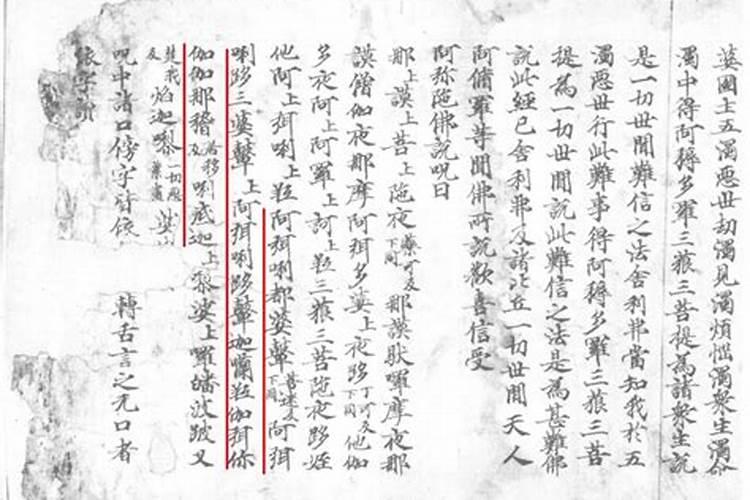 婆國土五濁惡世劫濁見濁煩惱濁衆生濁命
濁中得阿耨多羅三藐三菩提為諸衆生說
是一切世間難信之法舍利弗當知我於五
濁惡世行此難事得阿耨多羅三藐三菩
提為一切世間說此難信之法是為甚難佛
說此經已舍利弗及諸比丘一切世間天人
阿脩羅等聞佛所說歡喜信受
阿弥陁佛說呪曰
那上謨上菩上陁夜藥可反下同那謨馱囉摩夜那
謨僧伽夜那摩阿弭多婆上夜跢丁可反下同他伽
多夜阿上阿羅上訶上粒三藐三菩陁夜跢姪
他阿上弭唎上粒阿弭唎都婆鞞菩迷反下同阿弭
唎跢三婆鞞上阿弭唎跢鞞迦嚩粒伽弭你
伽伽那稽居移反唎底迦上黎婆上囉皤波跛叉
楚我反焰迦黎一切惡業盡娑
呪中諸口傍字皆依 轉舌言之无口者
依字讀